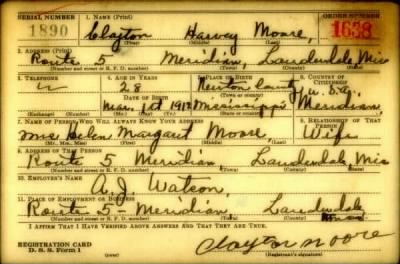 SERIAL NUMBER 1. NAME (Print) ORDER NUMBER
1890 Clayton Harvey Moore, 1638
(First) (Middle) (Last)
2. ADDRESS (Print)
Route 5 Meridian, Lauderdale, Miss
(Number and street or R. F. D. number) (Town) (County) (State)
3. TELEPHONE 4. AGE IN YEARS 5. PLACE OF BIRTH 6. COUNTRY OF CITIZENSHIP
28 Newton County U.S.A.
DATE OF BIRTH (Town or county)
Mar. 1st 1912 Mississippi Meridian,
(Mo.) (Day) (Yr.) (State or country)
7. NAME OF PERSON WHO WILL ALWAYS KNOW YOUR ADDRESS 8. RELATIONSHIP OF THAT PERSON
Mrs Helen Margaret Moore, Wife
(Mr., Mrs., Miss) (First) (Middle) (Last)
9. ADDRESS OF THAT PERSON
Route 5 Meridian, Lauderdale, Miss
(Number and street or R. F. D. number) (Town) (County) (State)
10. EMPLOYER'S NAME
A. J. Watson,
11. PLACE OF EMPLOYMENT OR BUSINESS
Route 5 - Meridian, Lauderdale Miss
(Number and street or R. F. D. number) (Town) (County) (State)
I AFFIRM THAT I HAVE VERIFIED ABOVE ANSWERS AND THAT THEY ARE TRUE.
REGISTRATION CARD
D. S. S. Form 1
Clayton Moore
(Registrant's signature)